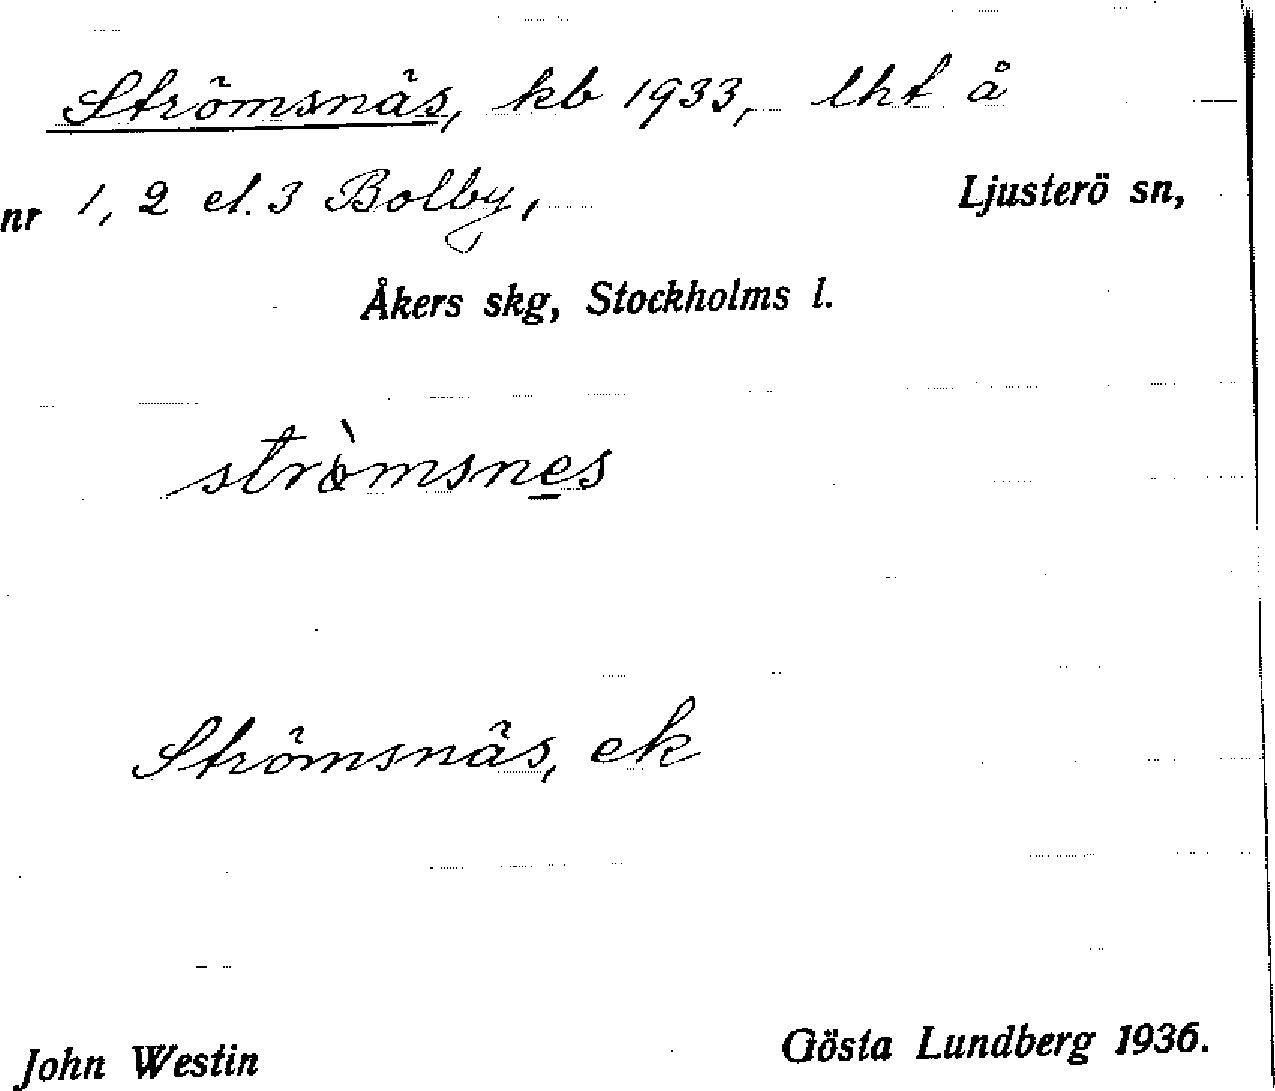 Strömsnäs, kb 1933, lht å
nr 1, 2 el. 3 Bolby, Ljusterö sn,
Åkers skg, Stockholms l.
strò̀msnes
Strömsnäs, ek
John Westin Gösta Lundberg 1936.